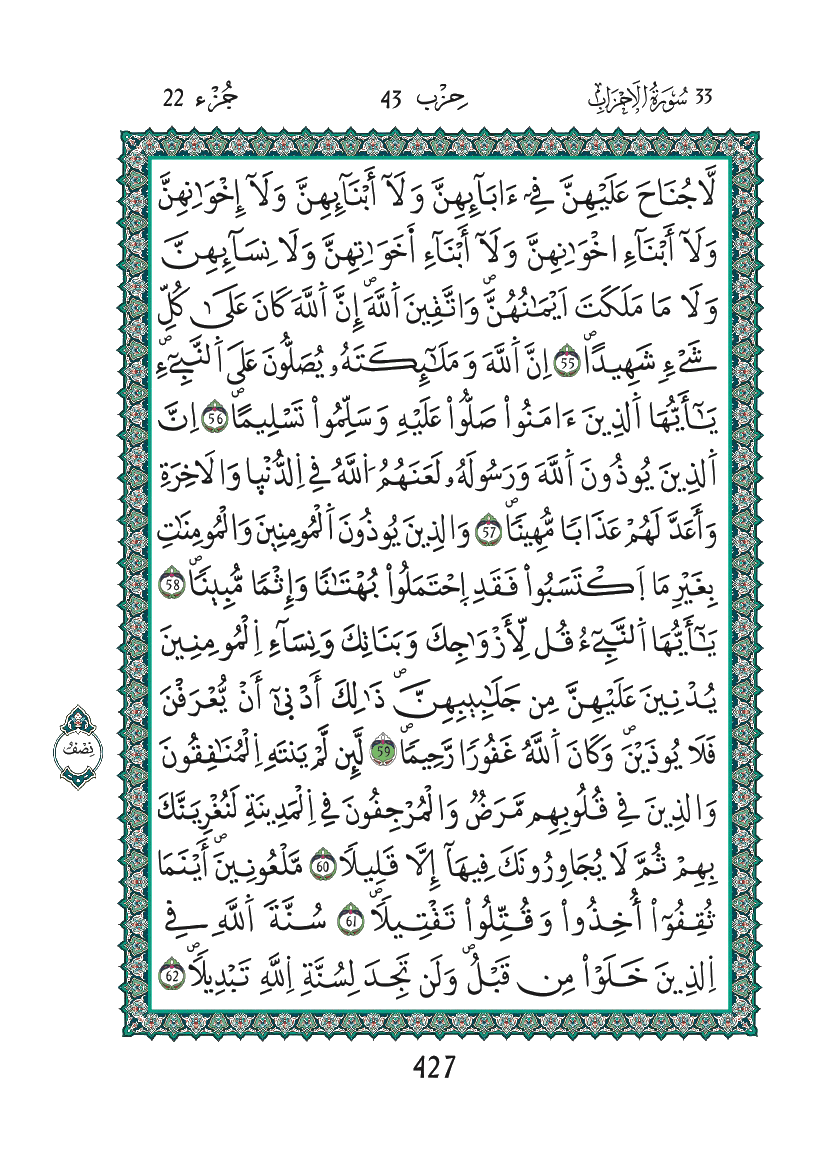 33 سُورَةُ الْأَحْزَابِ حِزْب 43 جُزْء 22
لَّا جُنَاحَ عَلَيْهِنَّ فِےٓ ءَابَآئِهِنَّ وَلَآ أَبْنَآئِهِنَّ وَلَآ إِخْوَٰنِهِنَّ
وَلَآ أَبْنَآءِ اخْوَٰنِهِنَّ وَلَآ أَبْنَآءِ اَ۬خَوَٰتِهِنَّ وَلَا نِسَآئِهِنَّ
وَلَا مَا مَلَكَتَ اَيْمَٰنُهُنَّۖ وَاتَّقِينَ اَ۬للَّهَۖ إِنَّ اَ۬للَّهَ كَانَ عَلَىٰ كُلِّ
شَےْءٖ شَهِيداًۖ 55 اِنَّ اَ۬للَّهَ وَمَلَٰٓئِكَتَهُۥ يُصَلُّونَ عَلَى اَ۬لنَّبِےٓءِۖ
يَٰٓأَيُّهَا اَ۬لذِينَ ءَامَنُواْ صَلُّواْ عَلَيْهِ وَسَلِّمُواْ تَسْلِيماًۖ 56 اِنَّ
اَ۬لذِينَ يُوذُونَ اَ۬للَّهَ وَرَسُولَهُۥ لَعَنَهُمُ اُ۬للَّهُ فِے اِ۬لدُّنْي۪ا وَالَاخِرَةِ
وَأَعَدَّ لَهُمْ عَذَاباٗ مُّهِيناٗۖ 57 وَالذِينَ يُوذُونَ اَ۬لْمُومِنِينَ وَالْمُومِنَٰتِ
بِغَيْرِ مَا اَ۪كْتَسَبُواْ فَقَدِ اِ۪حْتَمَلُواْ بُهْتَٰناٗ وَإِثْماٗ مُّبِيناٗۖ 58
يَٰٓأَيُّهَا اَ۬لنَّبِےٓءُ قُل لِّأَزْوَٰجِكَ وَبَنَاتِكَ وَنِسَآءِ اِ۬لْمُومِنِينَ
يُدْنِينَ عَلَيْهِنَّ مِن جَلَٰبِيبِهِنَّۖ ذَٰلِكَ أَدْن۪ىٰٓ أَنْ يُّعْرَفْنَ
فَلَا يُوذَيْنَۖ وَكَانَ اَ۬للَّهُ غَفُوراٗ رَّحِيماٗۖ 59 لَّئِن لَّمْ يَنتَهِ اِ۬لْمُنَٰفِقُونَ
نِصْف
وَالذِينَ فِے قُلُوبِهِم مَّرَضٞ وَالْمُرْجِفُونَ فِے اِ۬لْمَدِينَةِ لَنُغْرِيَنَّكَ
بِهِمْ ثُمَّ لَا يُجَاوِرُونَكَ فِيهَآ إِلَّا قَلِيلاٗ 60 مَّلْعُونِينَۖ أَيْنَمَا
ثُقِفُوٓاْ أُخِذُواْ وَقُتِّلُواْ تَقْتِيلاٗۖ 61 سُنَّةَ اَ۬للَّهِ فِے
اِ۬لذِينَ خَلَوْاْ مِن قَبْلُۖ وَلَن تَجِدَ لِسُنَّةِ اِ۬للَّهِ تَبْدِيلاٗۖ 62
427